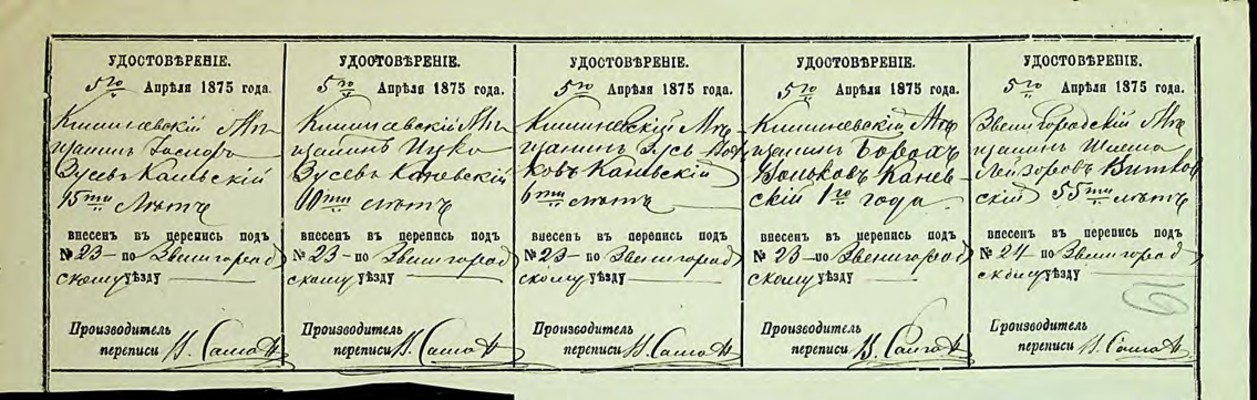 УДОСТОВѢРЕНІЕ.
5го Апрѣля 1875 года.
Кишиневскій Мѣ-
щанинъ
Зусевъ Каневскій
15ти Лѣтъ
внесенъ въ перепись подъ
№ 23 - по Звенигород
скому уѣзду
Производитель
переписи
УДОСТОВѢРЕНІЕ.
5го Апрѣля 1875 года.
Кишиневскій Мѣ
щанинъ Ицко
Зусевъ Каневскій
лѣтъ
внесенъ въ перепись подъ
№ 23 - по Звенигород
скому уѣзду
Производитель
переписи
УДОСТОВѢРЕНІЕ.
5го Апрѣля 1875 года.
Кишиневскій Мѣ-
щанинъ Зусь Воль
ковъ Каневскій
6ти лѣтъ
внесенъ въ перепись подъ
№ 23 - по Звенигород
скому уѣзду
Производитель
переписи
УДОСТОВѢРЕНІЕ.
5го Апрѣля 1875 года.
Кишиневскій Мѣ
щанинъ Борохъ
Вольковъ Канев-
скій 1го года.
внесенъ въ перепись подъ
№ 23 - по Звенигород
скому уѣзду
Производитель
переписи
УДОСТОВѢРЕНІЕ.
5го Апрѣля 1875 года.
Звенигородскій Мѣ
щанинъ Шлема
Лейзоровъ Витков
скій 55ти лѣтъ
внесенъ въ перепись подъ
№ 24 - по Звенигород
скому уѣзду
Производитель
переписи